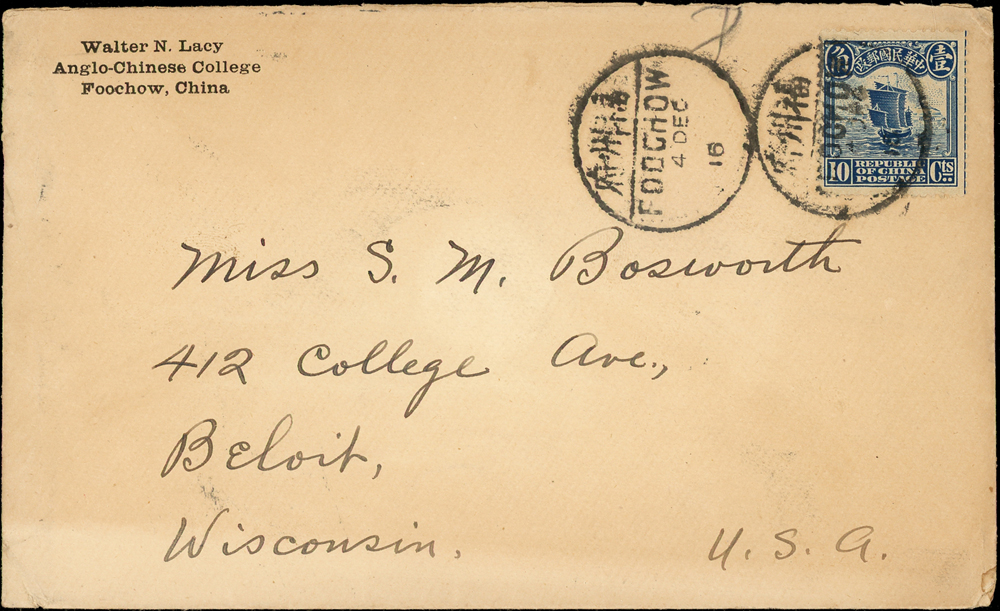 Walter N. Lacy
Anglo-Chinese College
Foochow, China
福州府
FOOCHOW
4 DEC
16
福州府
中華民國郵政
壹
角
10
REPUBLIC
OF CHINA
POSTAGE
Cts
Miss S. M. Bosworth
412 College Ave.,
Beloit,
Wisconsin.
U. S. A.